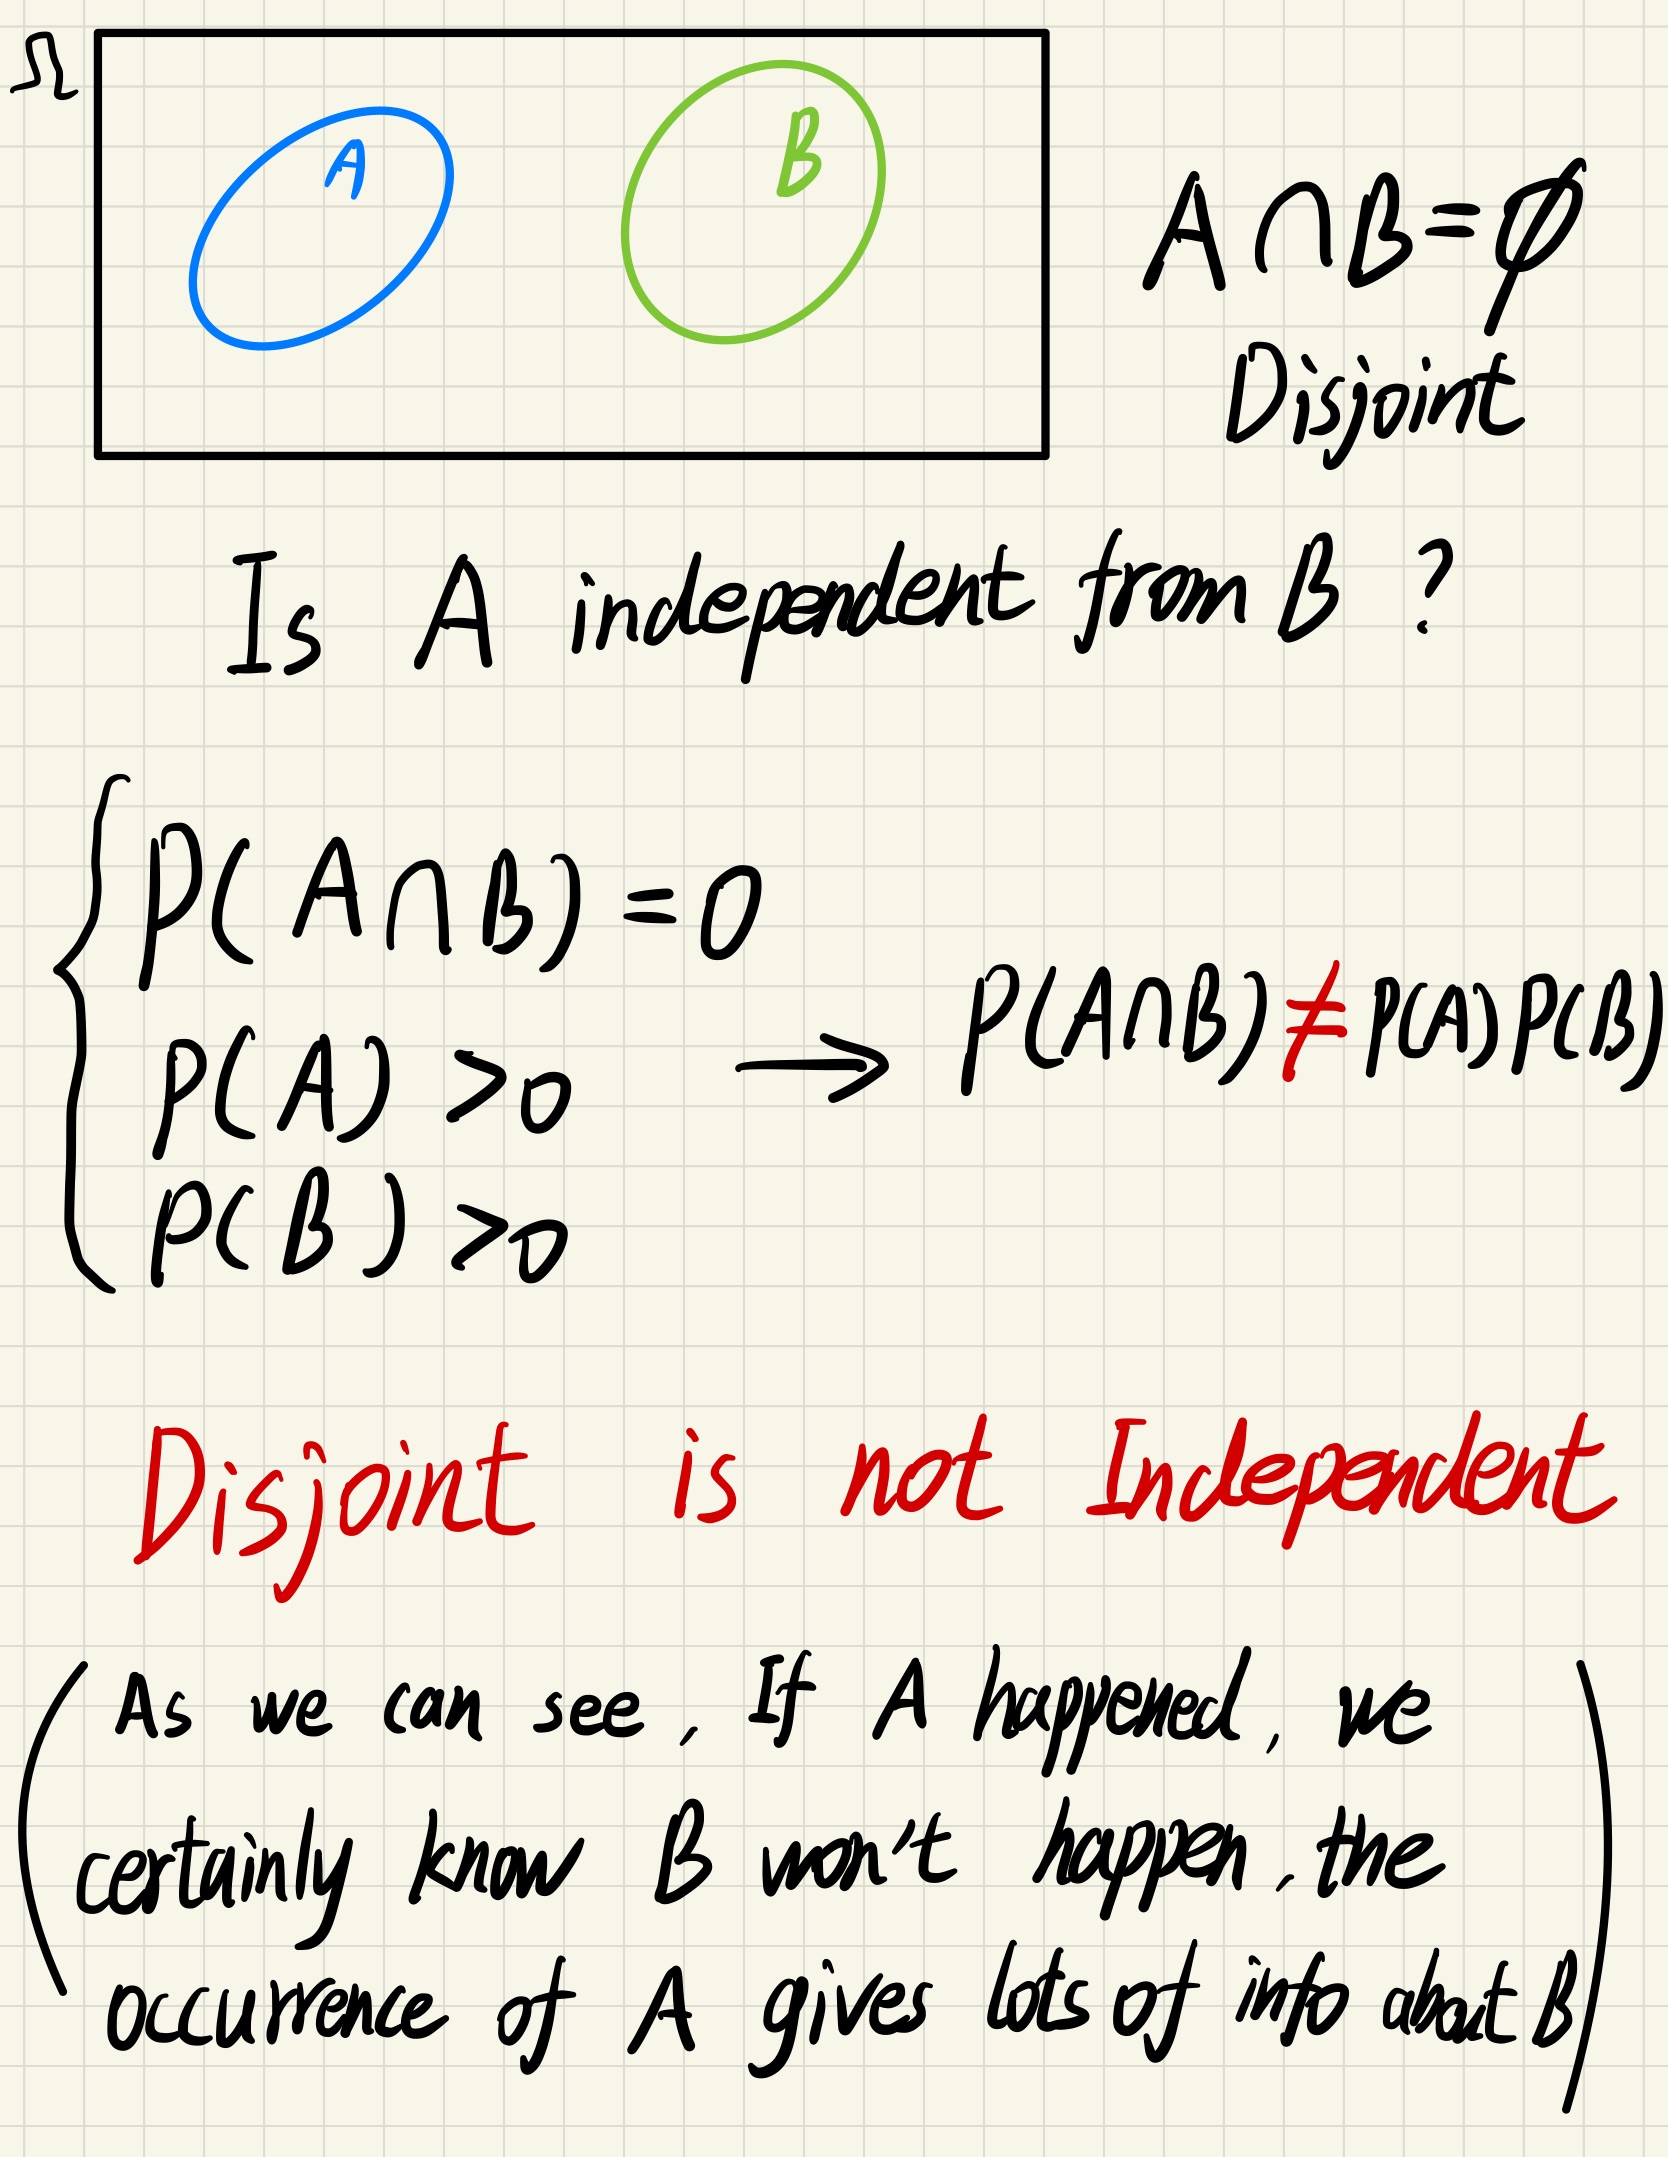 Ω
A
B
A∩B=∅
Disjoint
Is A independent from B ?
P(A∩B)=0
P(A)>0 → P(A∩B)≠P(A)P(B)
P(B)>0
Disjoint is not Independent
(As we can see, If A happened, we
certainly know B won't happen, the
occurrence of A gives lots of info about B)